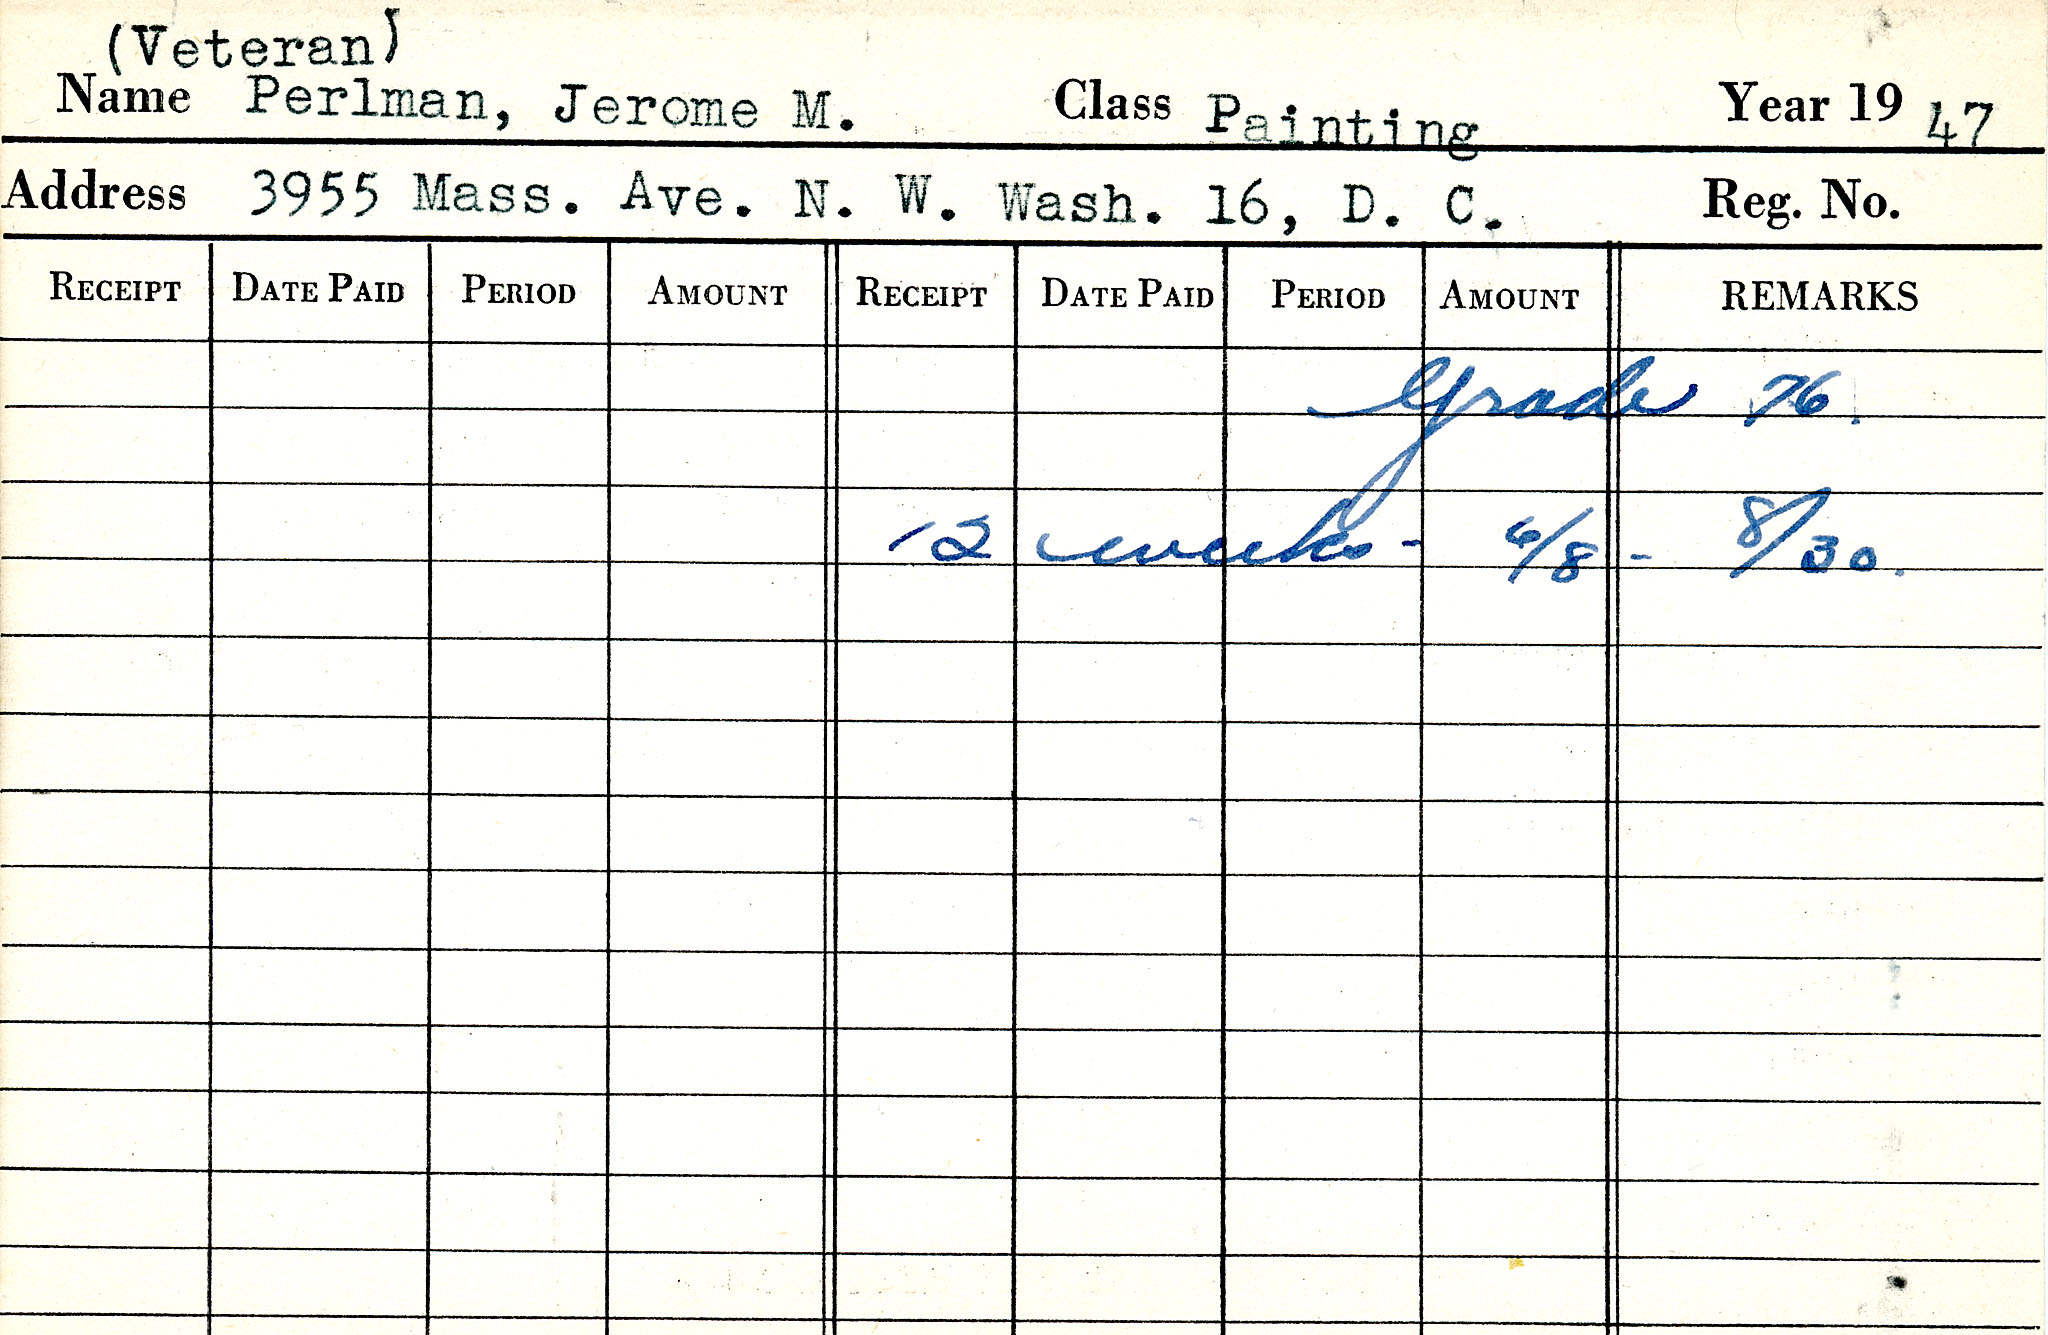 (Veteran)
Name Perlman, Jerome M. Class Painting Year 19 47
Address 3955 Mass. Ave. N. W. Wash. 16, D. C. Reg. No.
RECEIPT DATE PAID PERIOD AMOUNT RECEIPT DATE PAID PERIOD AMOUNT REMARKS
Grade 76.
12 weeks - 6/8 - 8/30.